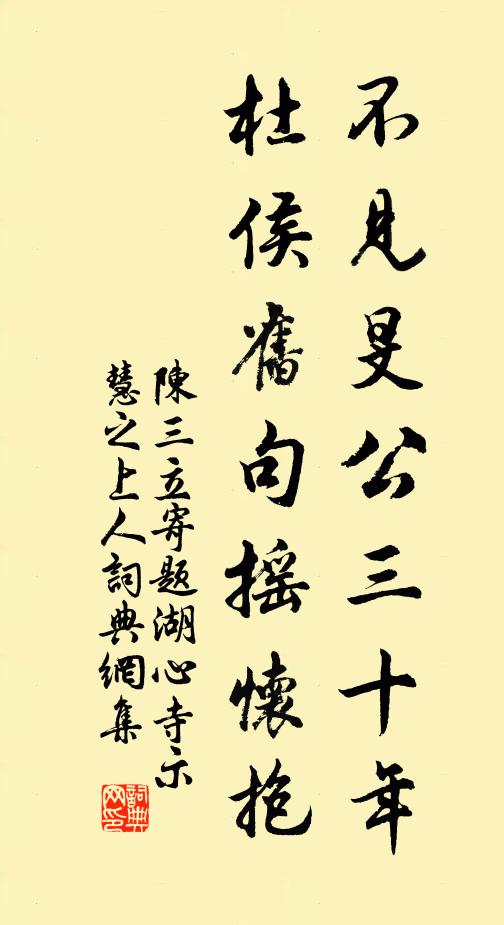 不見旻公三十年
杜侯舊句搖懷抱
陳三立寄題湖心寺示
慧之上人詞典網集
詞典網印